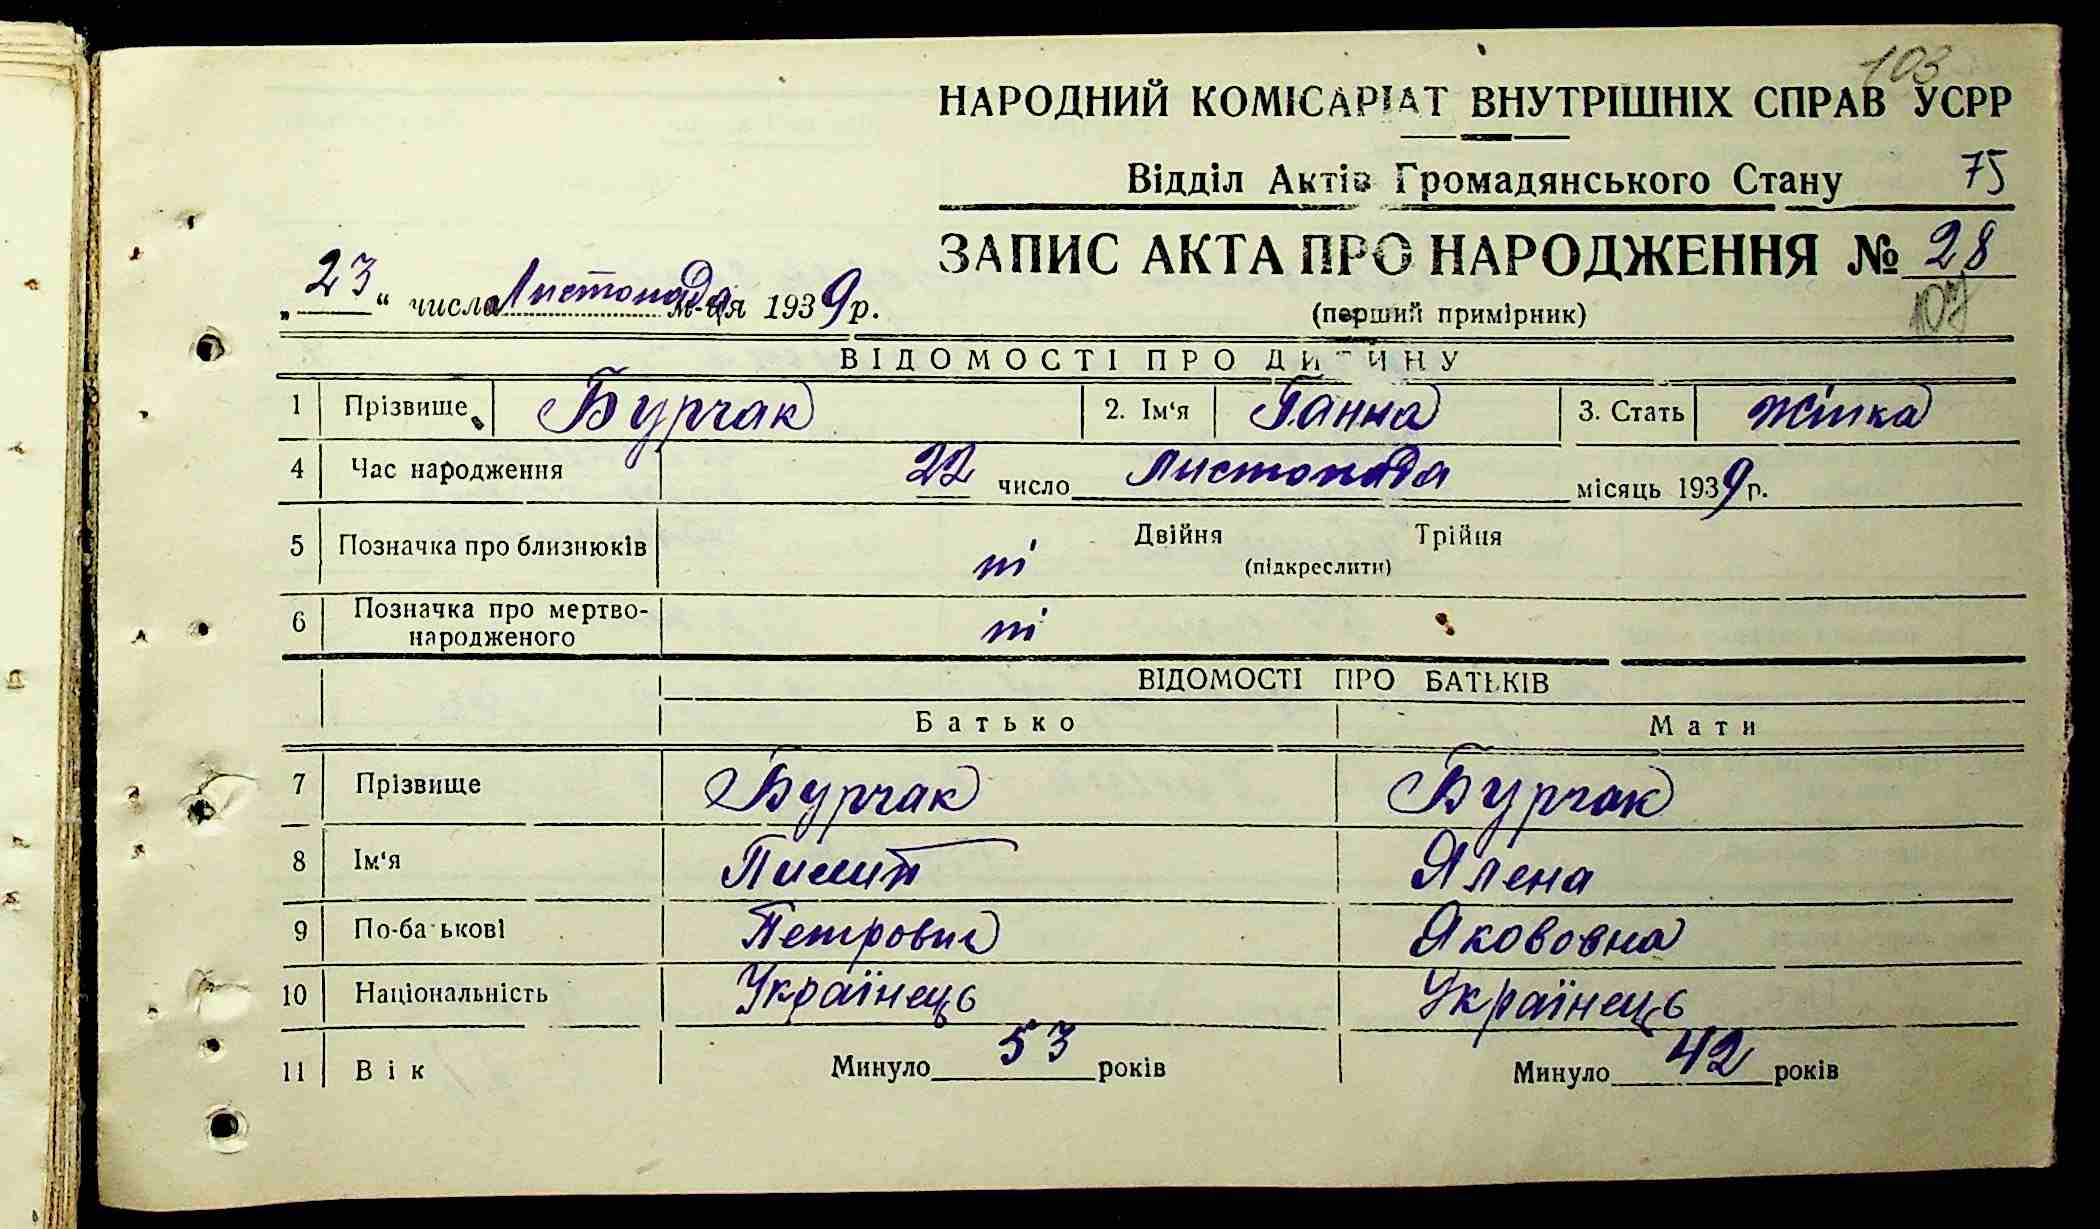 103
НАРОДНИЙ КОМІСАРІАТ ВНУТРІШНІХ СПРАВ УСРР
Відділ Актів Громадянського Стану 75
ЗАПИС АКТА ПРО НАРОДЖЕННЯ № 28
„23“ числа Листопада м-ця 1939 р.
(перший примірник) 107
ВІДОМОСТІ ПРО ДИТИНУ
1 Прізвище Бурчак 2. Ім‘я Ганна 3. Стать Жінка
4 Час народження 22 число Листопада місяць 1939 р.
5 Позначка про близнюків ні Двійня Трійня
(підкреслити)
6 Позначка про мертво-
народженого ні
ВІДОМОСТІ ПРО БАТЬКІВ
Батько Мати
7 Прізвище Бурчак Бурчак
8 Ім‘я Пимит Ялена
9 По-батькові Петрович Якововна
10 Національність Українець Українець
11 Вік Минуло 53 років Минуло 42 років